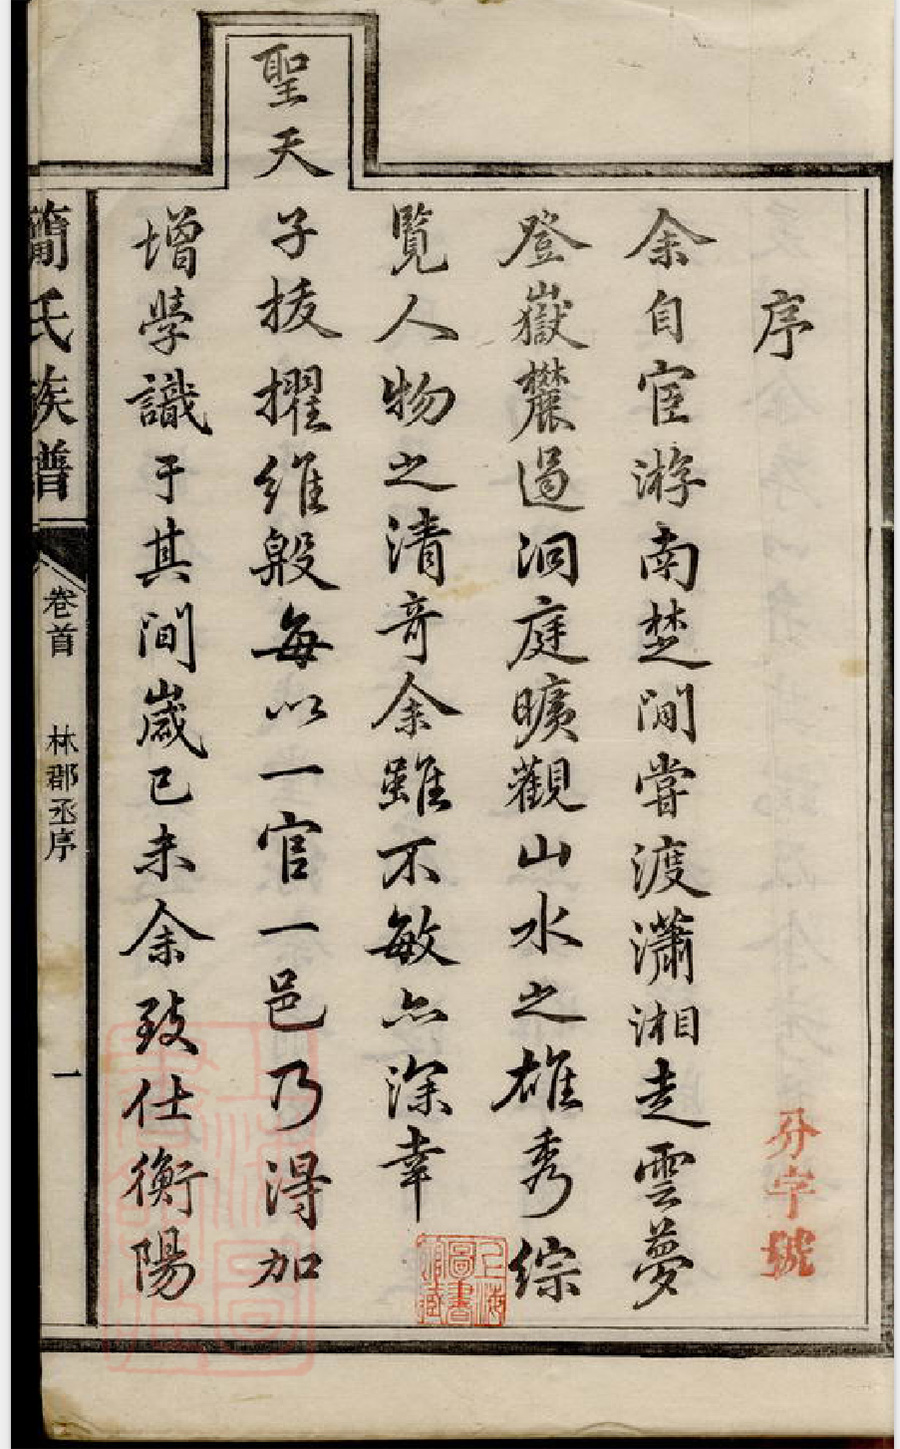 序
余自宦游南楚間嘗渡瀟湘走雲夢
登嶽麓過洞庭曠觀山水之雄秀綜
覽人物之清奇余雖不敏亦深幸
聖天
子拔擢維殷每以一官一邑乃淂加
增學識于其間歲已未余致仕衡陽
簡氏族譜
卷首
林郡丞序
一
字號
上海圖書館藏